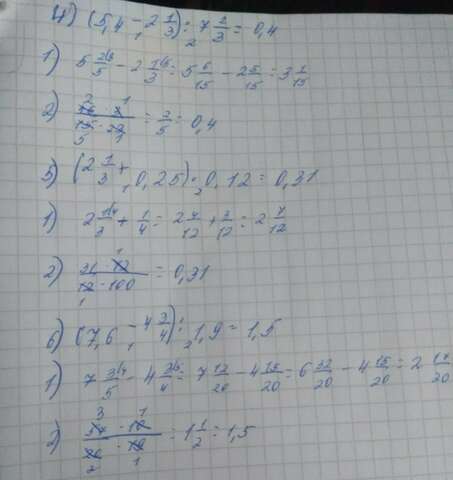 4) (5,4 - 2 1/3) : 7 2/3 = 0,4
1) 5 2/5 - 2 1/3 = 5 6/15 - 2 5/15 = 3 1/15
2) 46 · 3 / 15 · 23 = 2/5 = 0,4
5) (2 1/3 + 0,25) · 0,12 = 0,31
1) 2 1/3 + 1/4 = 2 4/12 + 3/12 = 2 7/12
2) 31 · 12 / 12 · 100 = 0,31
6) (7,6 - 4 3/4) : 1,9 = 1,5
1) 7 3/5 - 4 3/4 = 7 12/20 - 4 15/20 = 6 32/20 - 4 15/20 = 2 17/20
2) 57 · 10 / 20 · 19 = 1 1/2 = 1,5